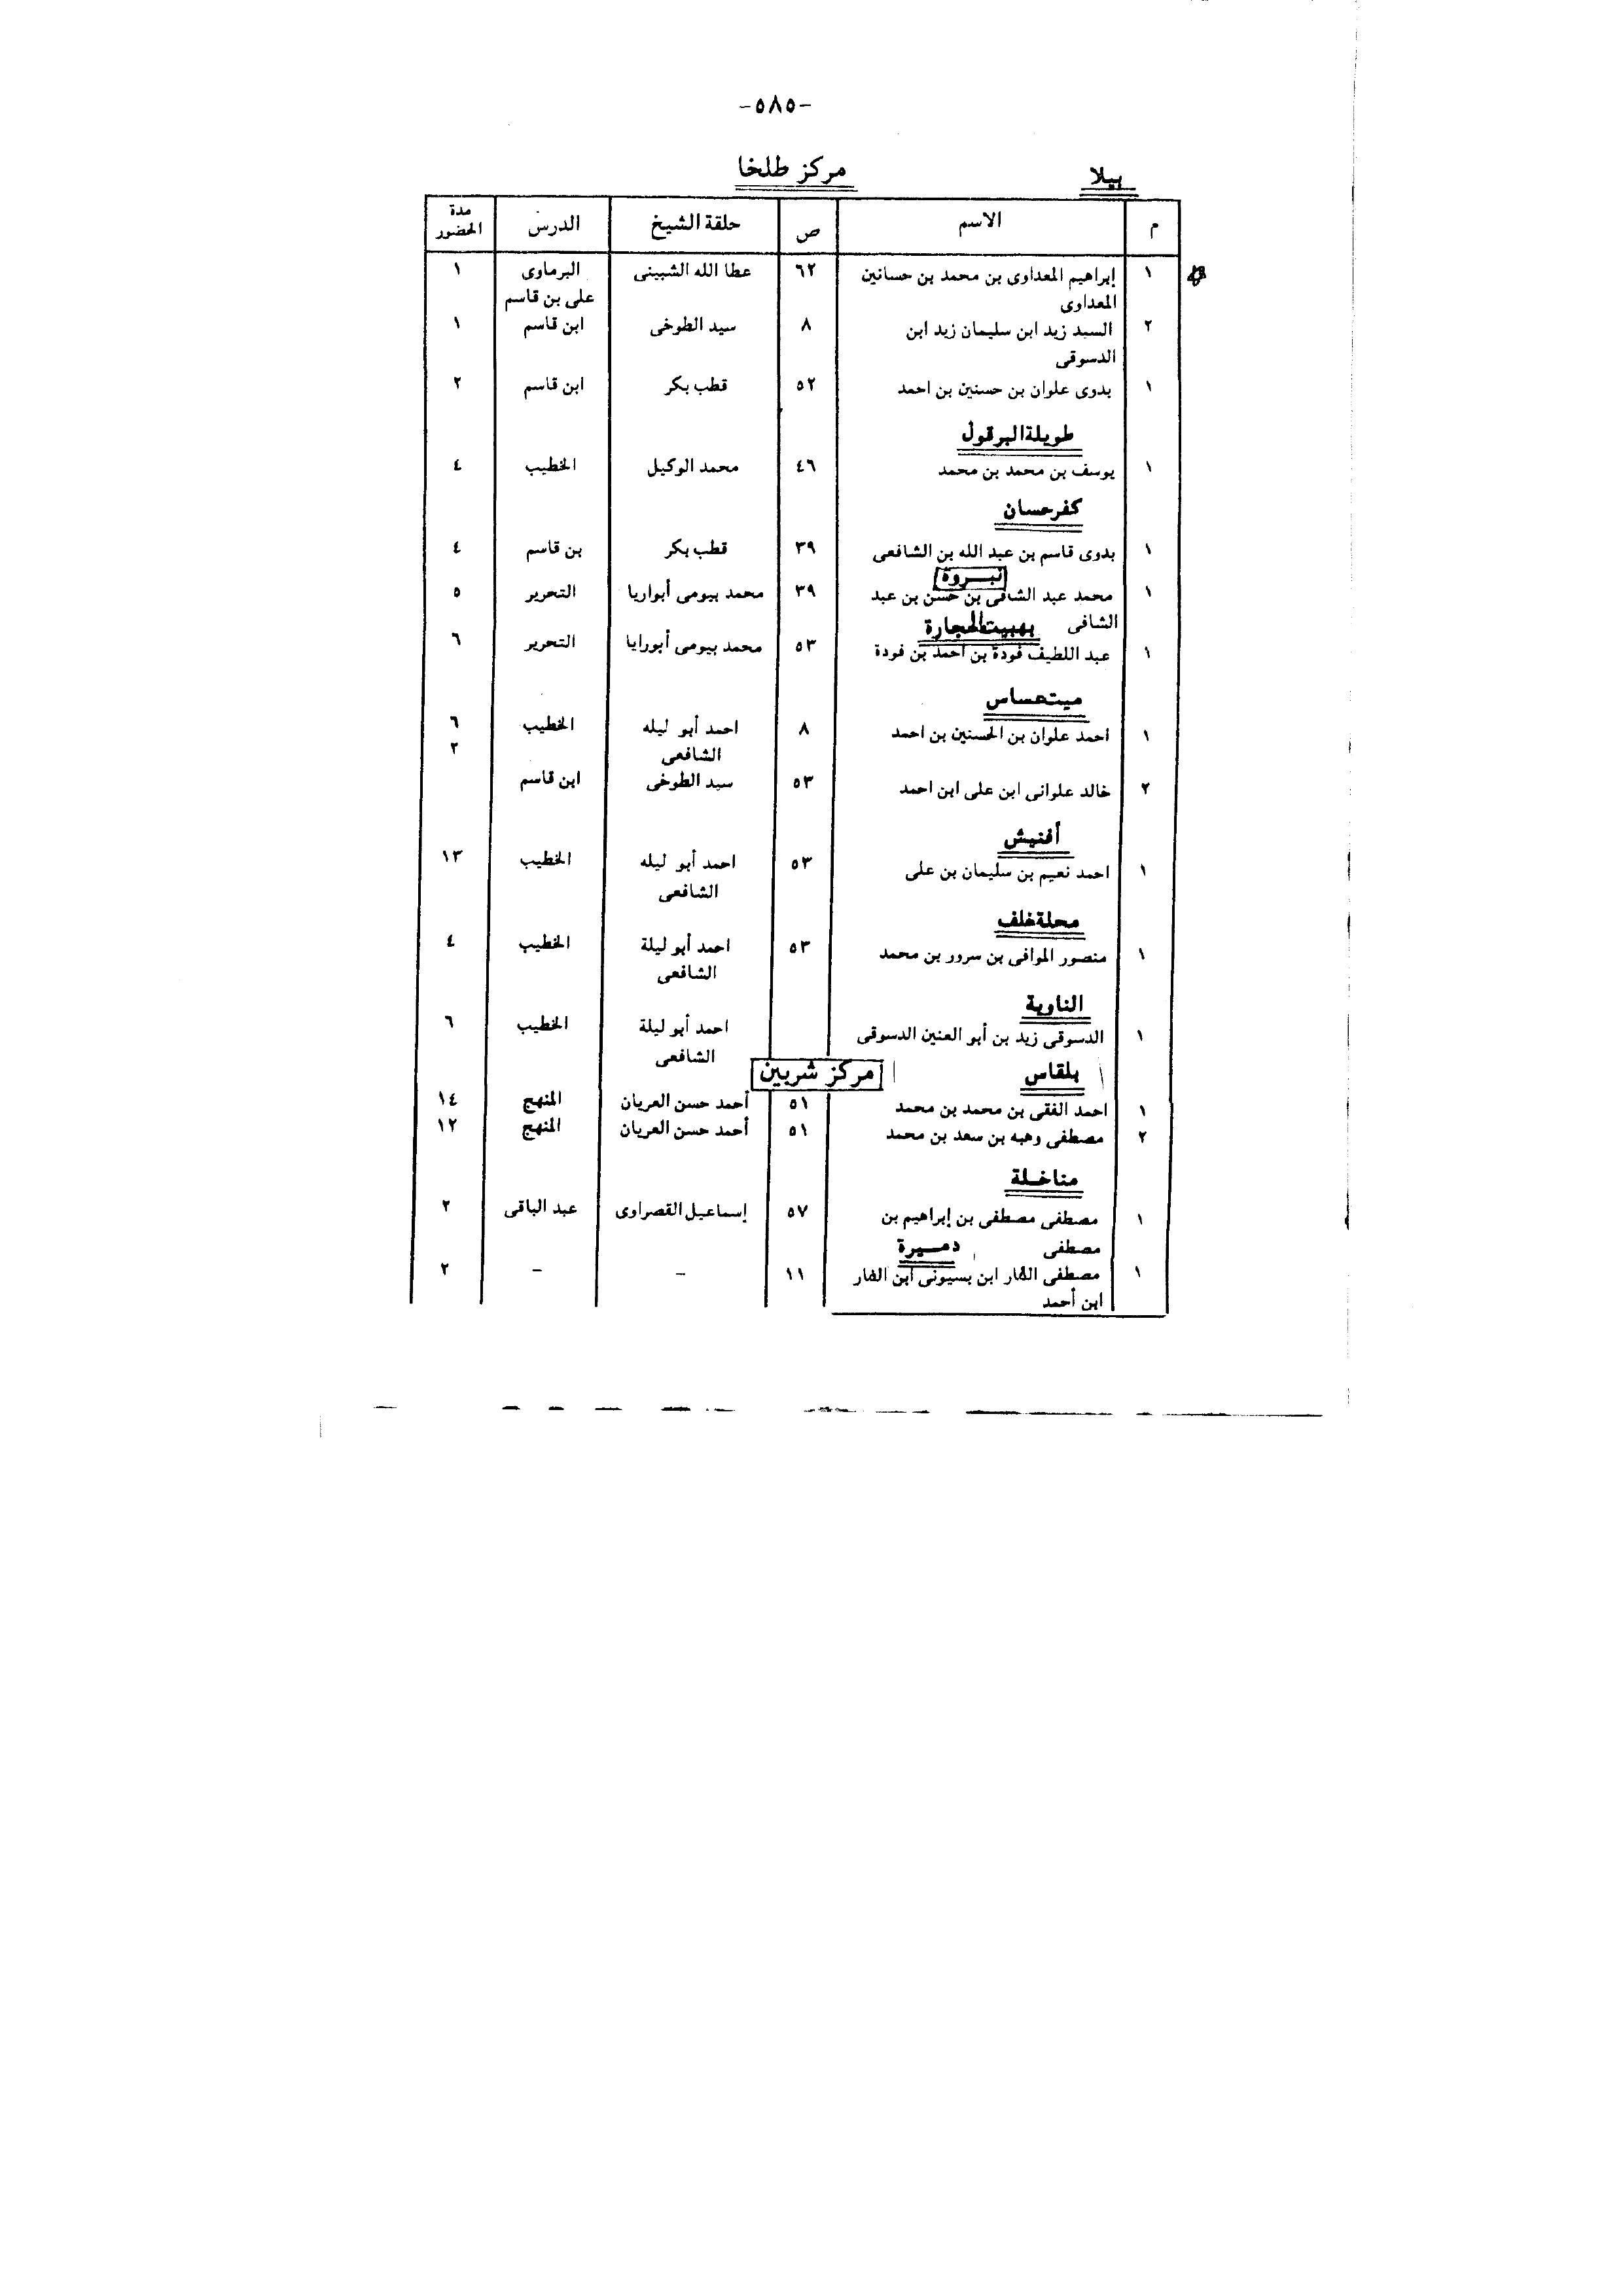 -٥٨٥-
بيلا مركز طلخا
م الاسم ص حلقة الشيخ الدرس مدة الحضور
١ إبراهيم المعداوى بن محمد بن حسانين ٦٢ عطا الله الشبينى البرماوى ١
المعداوى على بن قاسم
٢ السيد زيد ابن سليمان زيد ابن ٨ سيد الطوخى ابن قاسم ١
الدسوقى
١ بدوى علوان بن حسنين بن احمد ٥٢ قطب بكر ابن قاسم ٢
طويلة البرقول
١ يوسف بن محمد بن محمد ٤٦ محمد الوكيل الخطيب ٤
كفر حسان
١ بدوى قاسم بن عبد الله بن الشافعى ٣٩ قطب بكر بن قاسم ٤
نبروة
١ محمد عبد الشافى بن حسن بن عبد ٣٩ محمد بيومى أبواريا التحرير ٥
الشافى بهبيت الحجارة
١ عبد اللطيف فودة بن أحمد بن فودة ٥٣ محمد بيومى أبورايا التحرير ٦
ميت عساس
١ احمد علوان بن الحسنين بن احمد ٨ احمد أبو ليله الخطيب ٦
الشافعى ٢
٢ خالد علوانى ابن على ابن احمد ٥٣ سيد الطوخى ابن قاسم
أفنيش
١ احمد نعيم بن سليمان بن على ٥٣ احمد أبو ليله الخطيب ١٣
الشافعى
محلة خلف
١ منصور الموافى بن سرور بن محمد ٥٣ احمد أبو ليلة الخطيب ٤
الشافعى
الناوية
١ الدسوقى زيد بن أبو العنين الدسوقى احمد أبو ليلة الخطيب ٦
الشافعى
بلقاس مركز شربين
١ احمد الفقى بن محمد بن محمد ٥١ أحمد حسن العريان المنهج ١٤
٢ مصطفى وهبه بن سعد بن محمد ٥١ أحمد حسن العريان المنهج ١٢
مناخلة
١ مصطفى مصطفى بن إبراهيم بن ٥٧ إسماعيل القصراوى عبد الباقى ٢
مصطفى دميرة
١ مصطفى الفار ابن بسيونى ابن الفار ١١ – – ٢
ابن أحمد